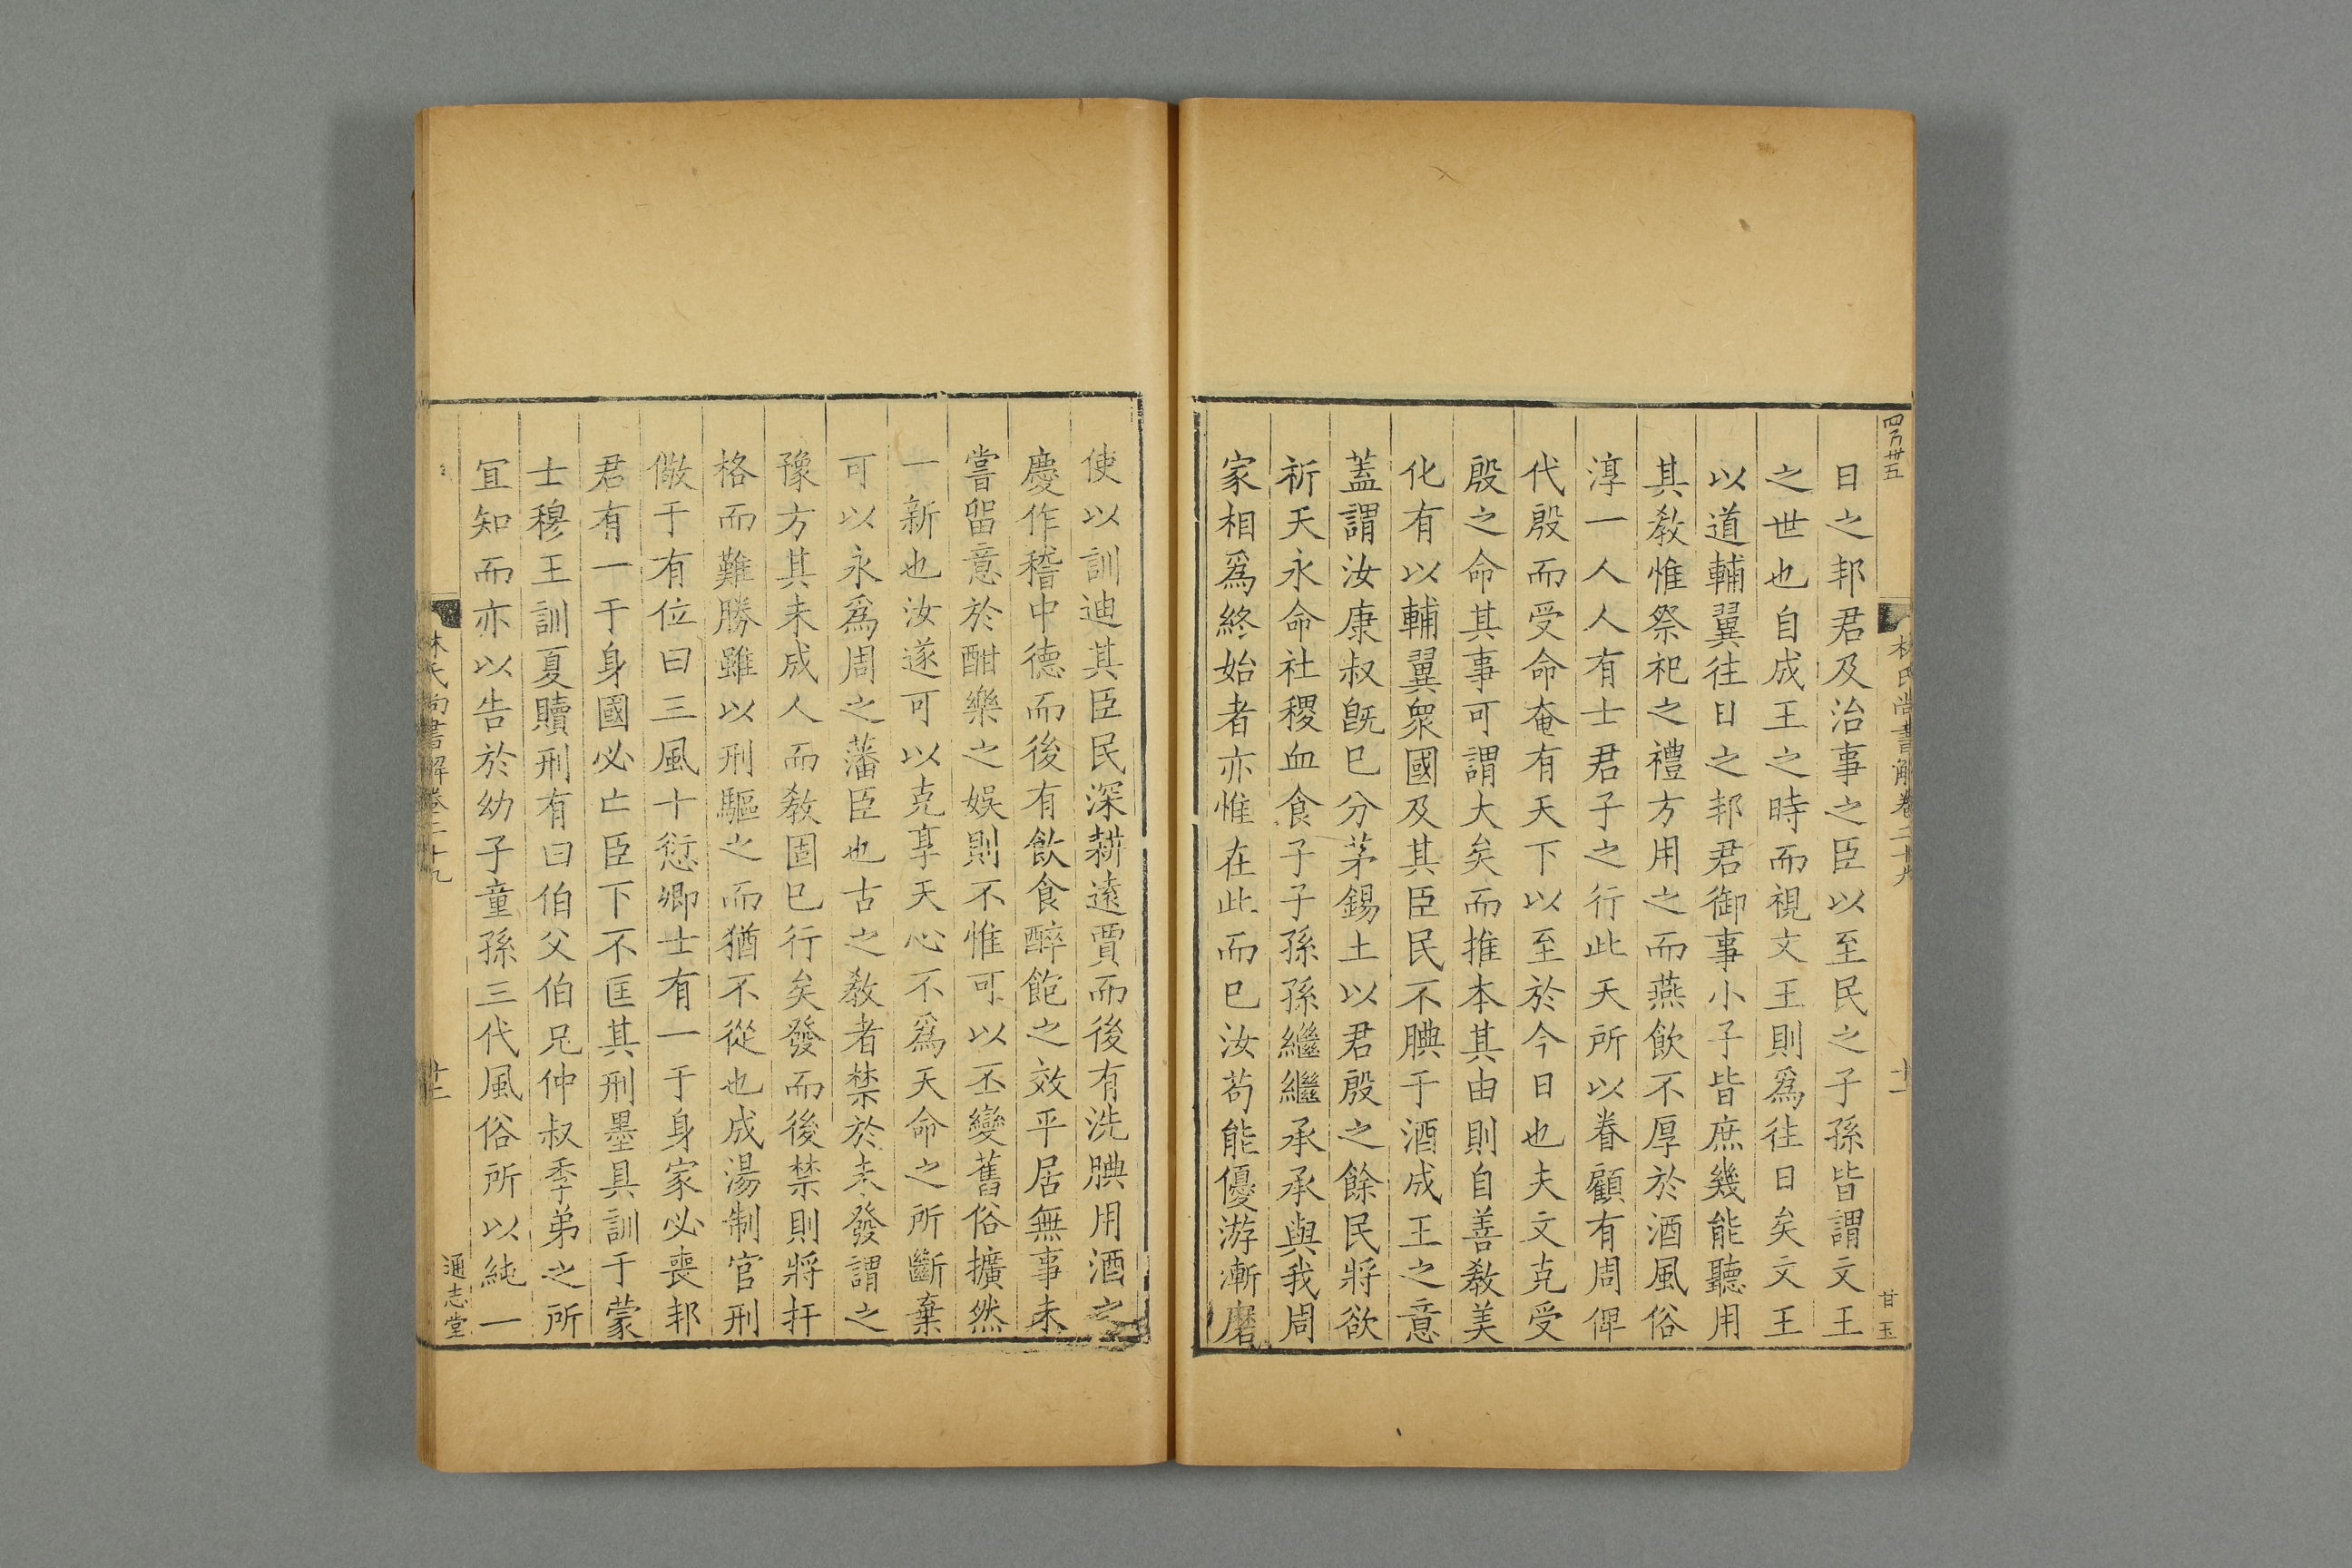 四百卅五
林氏尚書解卷二十九
十一
甘玉
日之邦君及治事之臣以至民之子孫皆謂文王
之世也自成王之時而視文王則爲往日矣文王
以道輔翼往日之邦君御事小子皆庶幾能聽用
其敎惟祭祀之禮方用之而燕飮不厚於酒風俗
淳一人人有士君子之行此天所以眷顧有周俾
代殷而受命奄有天下以至於今日也夫文克受
殷之命其事可謂大矣而推本其由則自善敎美
化有以輔翼衆國及其臣民不腆于酒成王之意
蓋謂汝康叔旣巳分茅錫土以君殷之餘民將欲
祈天永命社稷血食子子孫孫繼繼承承與我周
家相爲終始者亦惟在此而巳汝茍能優游漸磨
使以訓迪其臣民深耕遠賈而後有洗腆用酒之
慶作稽中德而後有飮食醉飽之效平居無事未
嘗留意於酣樂之娛則不惟可以丕變舊俗擴然
一新也汝遂可以克享天心不爲天命之所斷棄
可以永爲周之藩臣也古之敎者禁於未發謂之
豫方其未成人而敎固巳行矣發而後禁則將扞
格而難勝雖以刑驅之而猶不從也成湯制官刑
儆于有位曰三風十愆卿士有一于身家必喪邦
君有一于身國必亡臣下不匡其刑墨具訓于蒙
士穆王訓夏贖刑有曰伯父伯兄仲叔季弟之所
宜知而亦以告於幼子童孫三代風俗所以純一
林氏尚書解卷二十九
十二
通志堂